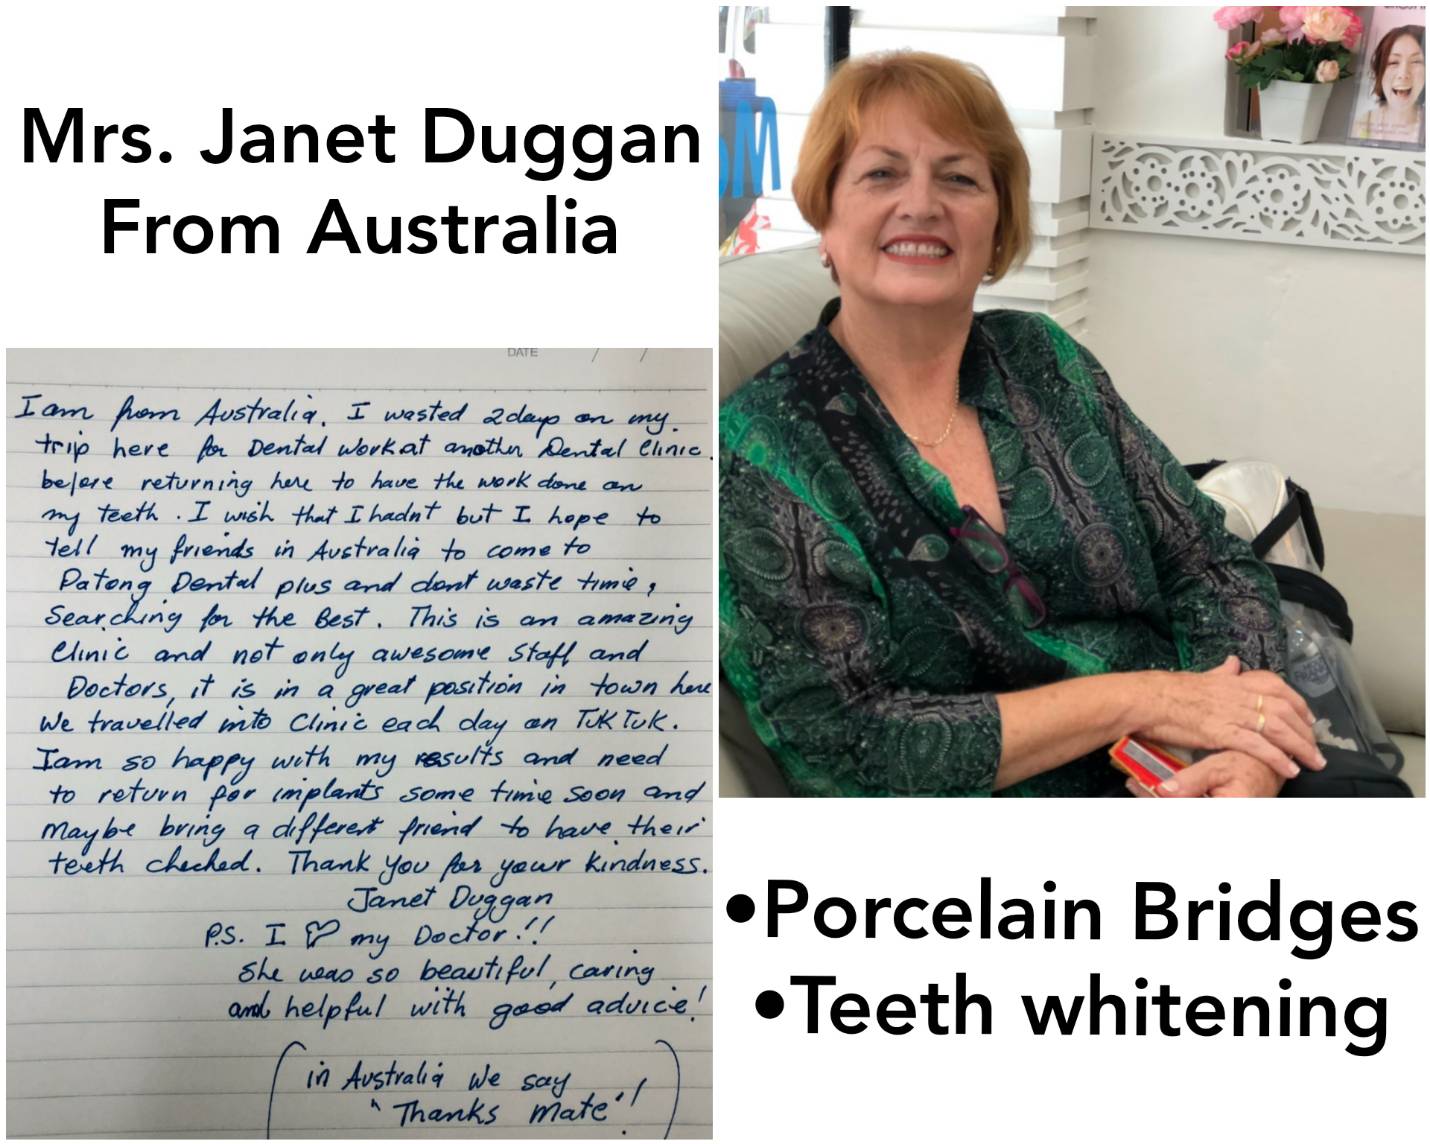 Mrs. Janet Duggan
From Australia
DATE / /
I am from Australia. I wasted 2 days on my
trip here for Dental work at another Dental Clinic.
before returning here to have the work done on
my teeth. I wish that I hadnt but I hope to
tell my friends in Australia to come to
Patong Dental plus and dont waste time,
Searching for the Best. This is an amazing
Clinic and not only awesome Staff and
Doctors, it is in a great position in town here
We travelled into Clinic each day on TUK TUK.
I am so happy with my results and need
to return for implants some time soon and
Maybe bring a different friend to have their
teeth checked. Thank You for your Kindness.
Janet Duggan
P.S. I ♡ my Doctor!!
She was so beautiful, caring
and helpful with good advice!
(in Australia We say
"Thanks Mate"!)
•Porcelain Bridges
•Teeth whitening